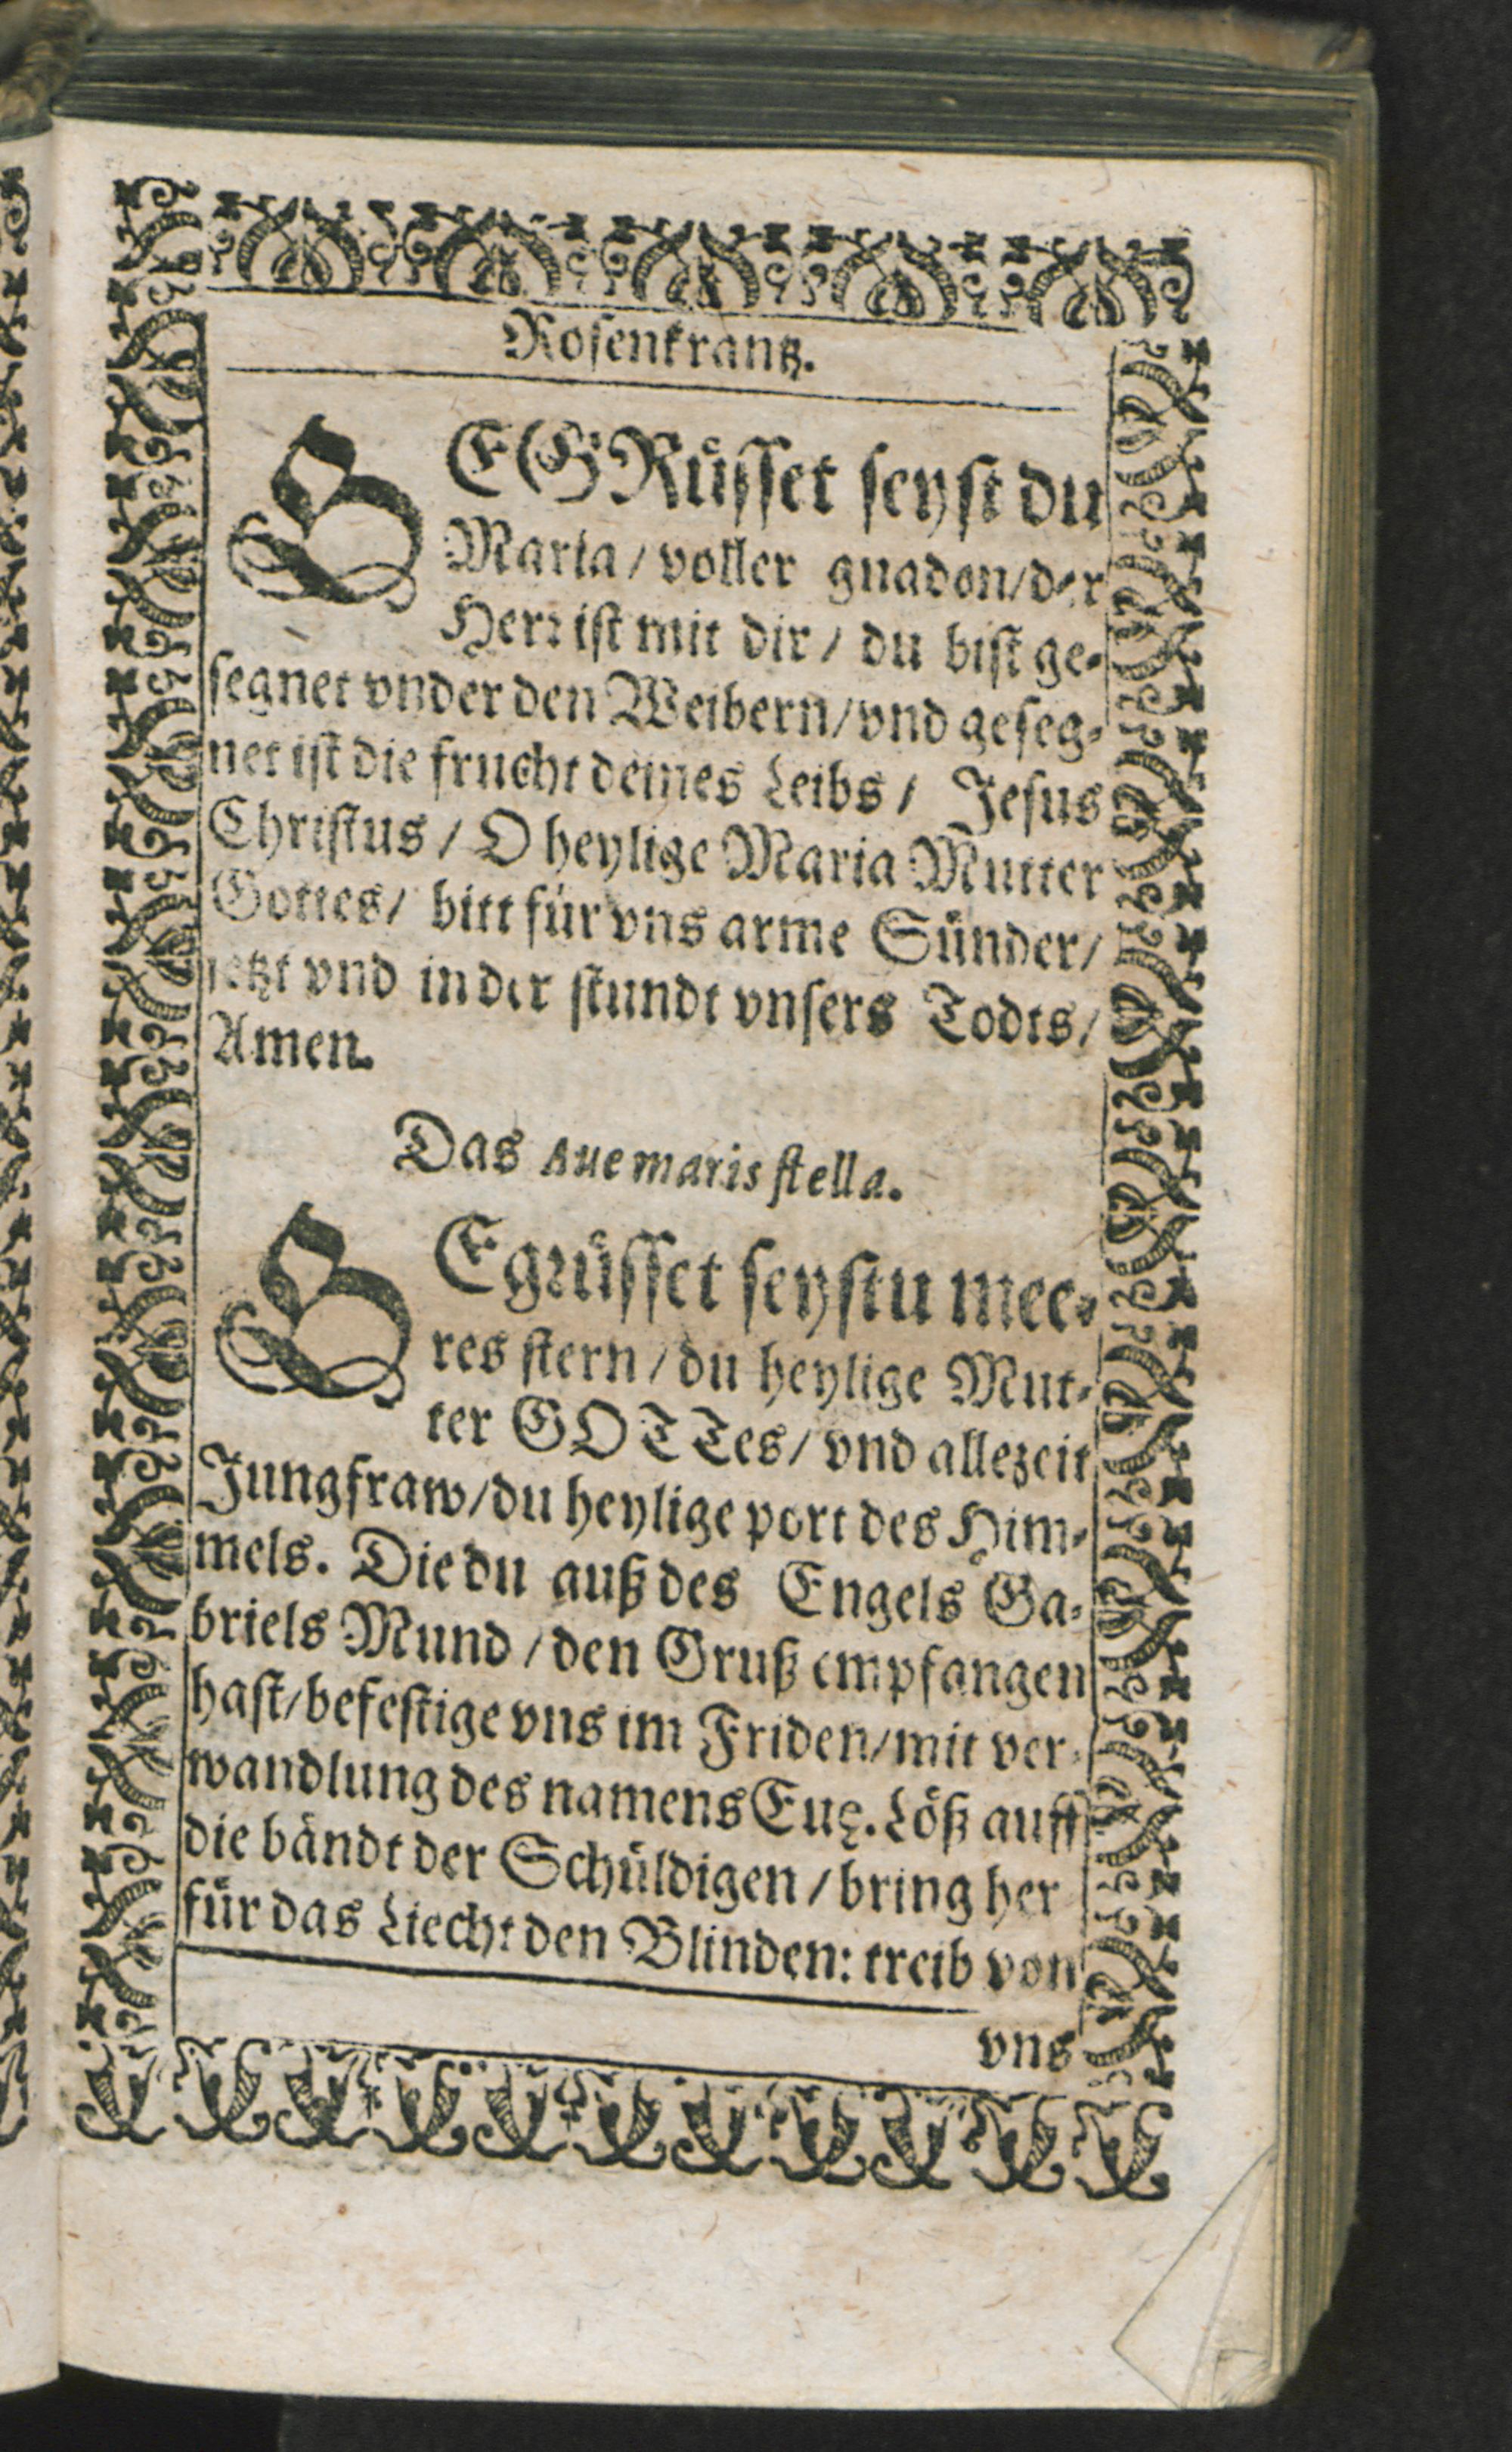 Rosenkrantz.
GEGRüsset seyst du
Maria / voller gnaden / der
Herr ist mit dir / du bist ge-
segnet vnder den Weibern / vnd geseg-
net ist die frucht deines Leibs / Jesus
Christus / O heylige Maria Mutter
Gottes / bitt für vns arme Sünder /
jetzt vnd in der stundt vnsers Todts /
Amen.
Das Aue maris stella.
GEgrüsset seystu mee-
res stern / du heylige Mut-
ter GOTTes / vnd allezeit
Jungfraw / du heylige port des Him-
mels. Die du auß des Engels Ga-
briels Mund / den Gruß empfangen
hast / befestige vns im Friden / mit ver-
wandlung des namens Eue. Löß auff
die bändt der Schüldigen / bring her
für das Liecht den Blinden: treib von
vns